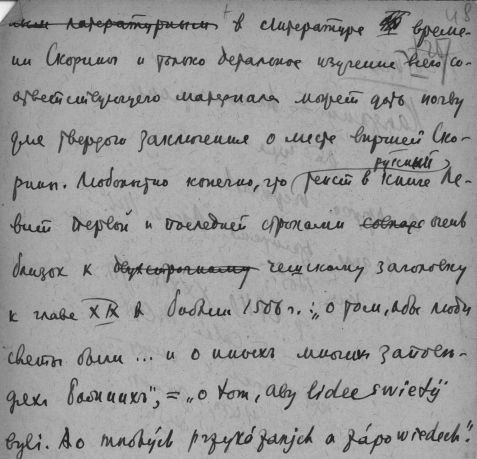 ным литературным в литературе XVI време-
ни Скорины и только детальное изучение всего со-
ответствующего материала может дать почву
для твердого заключения о месте виршей Ско-
рины. Любопытно конечно, что русский текст в книге Ле-
вит первой и последней строками совпад очень
близок к двухстрочному чешскому заголовку
к главе XIX в библии 1506 г.: „о том, абы люди
светы были ... и о иных многих запове-
дях божиих", = „о tom, aby lidee swietij
byli. A o mnohých przykázanjch a zápowiedech".